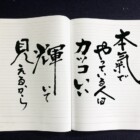 本気で
やっている人は
カッコいい
輝いて
見えるから